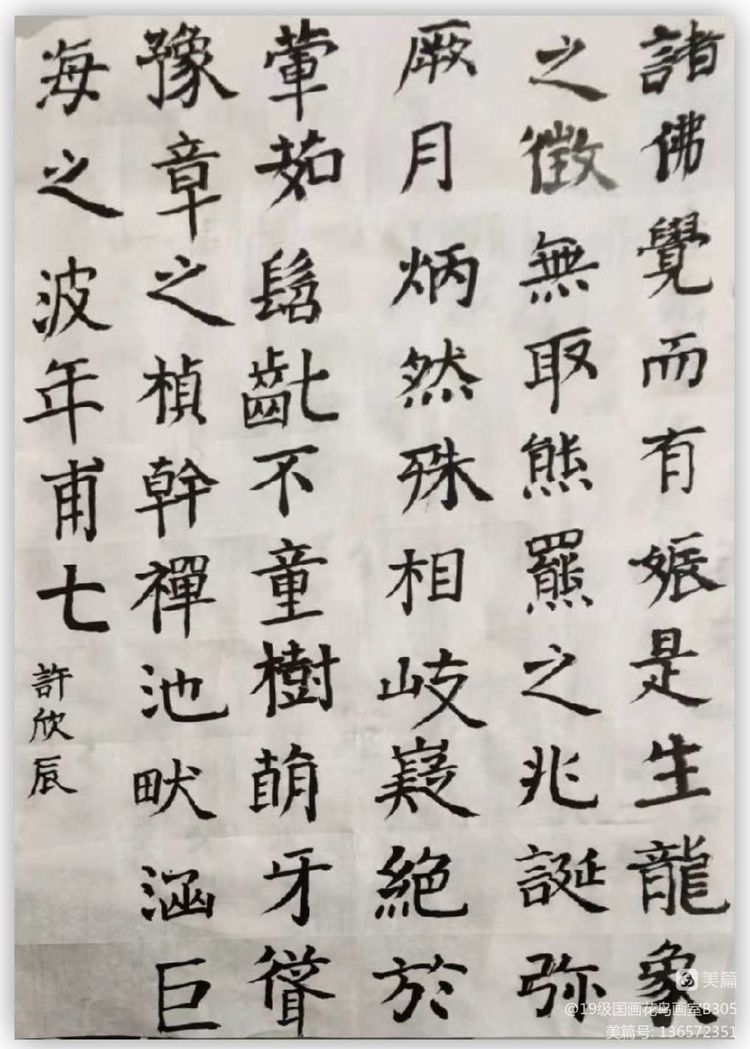 諸佛覺而有娠是生龍象
之徵無取熊羆之兆誕弥
厥月炳然殊相岐嶷絕於
葷茹髫齔不童樹萌牙聳
豫章之楨幹禪池畎涵巨
海之波年甫七
許欣辰
美篇
@19级国画花鸟画室B305
美篇号: 136572351